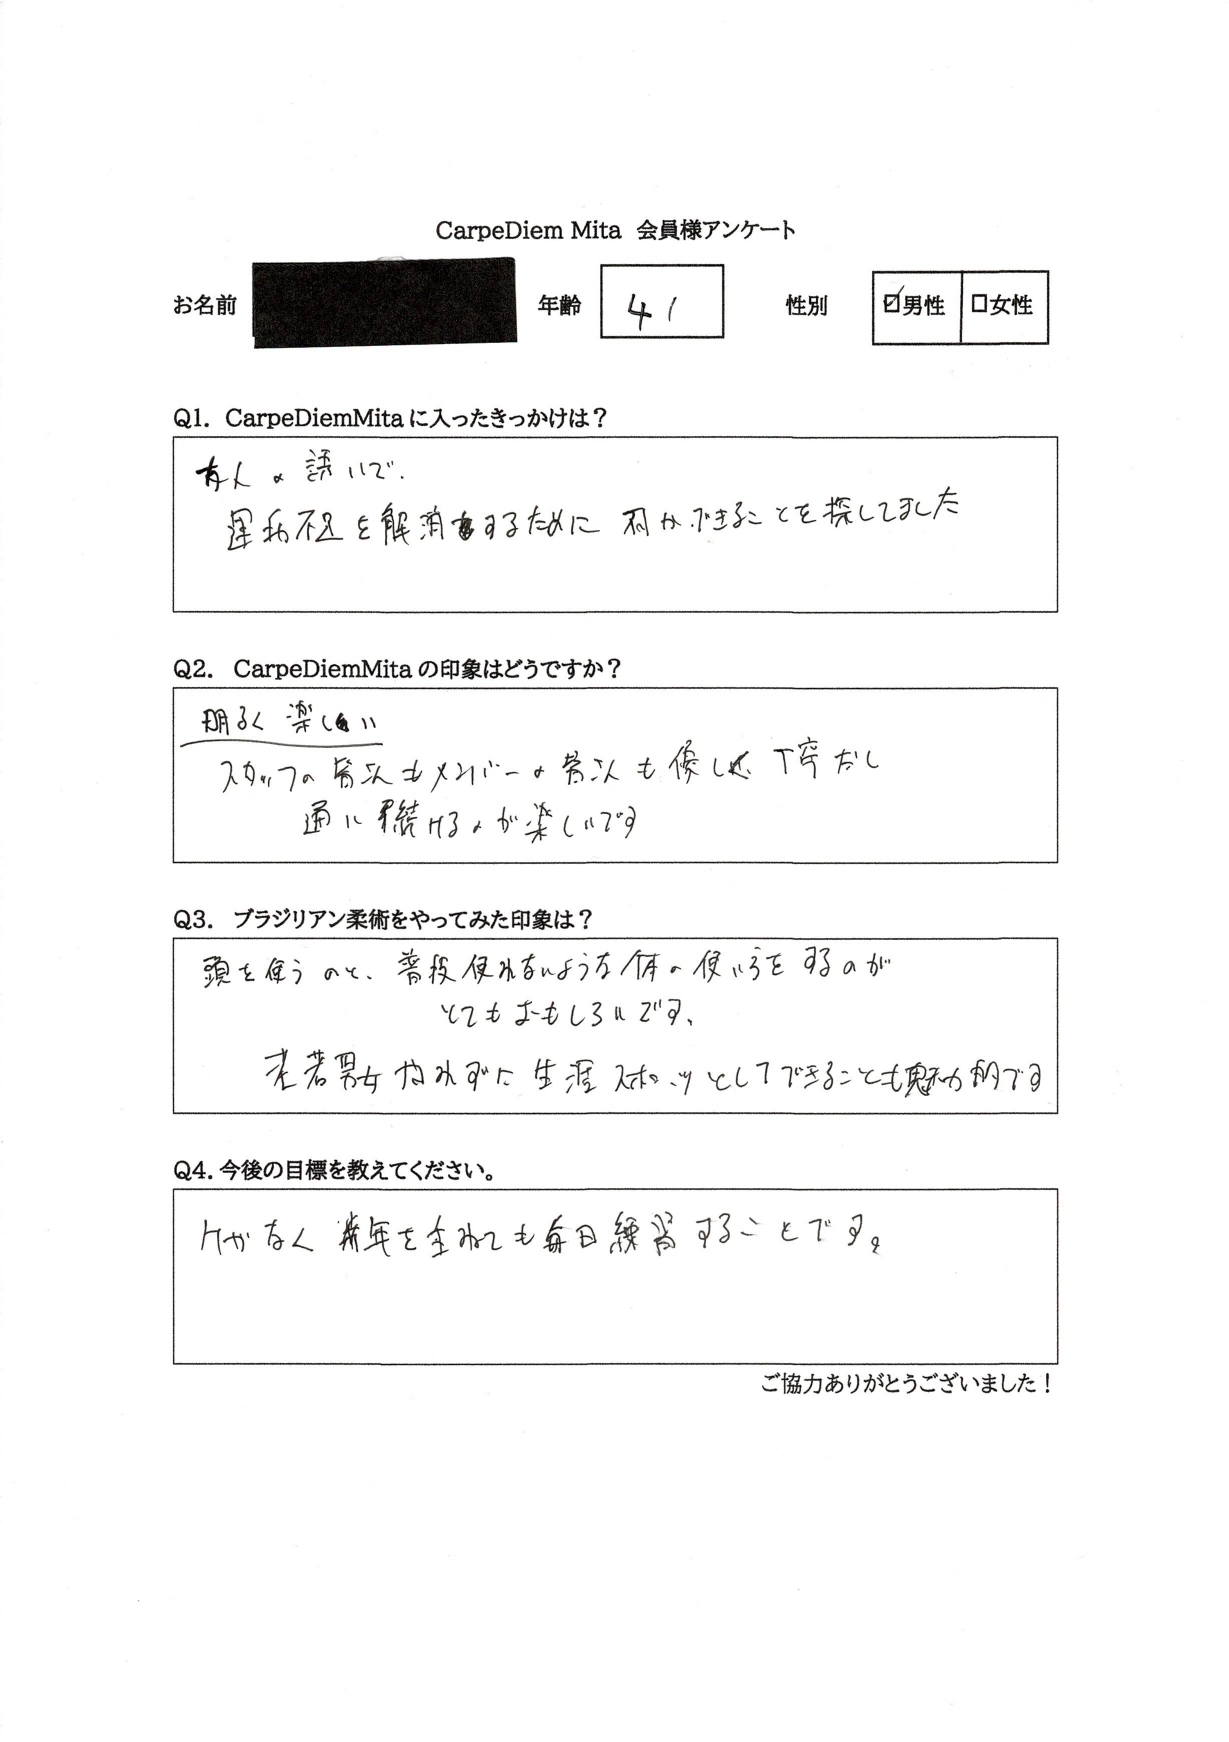 CarpeDiem Mita 会員様アンケート
お名前 年齢 41 性別 ☑男性 □女性
Q1. CarpeDiemMitaに入ったきっかけは？
友人の誘いで.
運動不足を解消するために 何かできることを探してました
Q2. CarpeDiemMitaの印象はどうですか？
明るく楽しい
スタッフの皆さんもメンバーの皆さんも優しく、丁寧だし
通い続けるのが楽しいです
Q3. ブラジリアン柔術をやってみた印象は？
頭を使うのと、普段使わないような体の使い方をするのが
とてもおもしろいです、
老若男女 やれずに 生涯スポーツとしてできることも魅力的です
Q4. 今後の目標を教えてください。
ケガなく 年を重ねても毎日練習することです。
ご協力ありがとうございました！